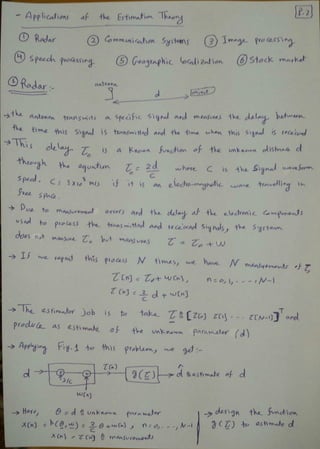 P.2
- Applications of the Estimation Theory
① Radar ② Communication Systems ③ Image processing
④ Speech processing ⑤ Geographic localization ⑥ Stock market
① Radar :-
antenna
d
object
→ the antenna transmits a specific signal and measures the delay between
the time this signal is transmitted and the time when this signal is received
→ This delay τ₀ is a known function of the unknown distance d
through the equation τ₀ = 2d/c where c is the signal waveform
speed. c = 3x10⁸ m/s if it is an electro-magnetic wave travelling in
free space.
→ Due to measurement errors and the delay of the electronic components
used to process the transmitted and received signals, the system
does not measure τ₀ but measures τ = τ₀ + w
→ If we repeat this process N times, we have N measurements of τ₀
τ[n] = τ₀ + w[n], n=0,1,----,N-1
τ[n] = 2/c d + w[n]
→ The estimator job is to take τ ≜ [τ[0] τ[1] ---- τ[N-1]]ᵀ and
produce an estimate of the unknown parameter (d)
→ Applying Fig.1 to this problem, we get:-
d → 2/c → + τ[n] → g(τ) → d̂ ≜ estimate of d
w[n]
→ Here, θ = d ≜ unknown parameter
x[n] = h(θ,w) = 2/c θ + w[n], n=0,----,N-1
x[n] = τ[n] ≜ measurements
→ design the function
g(τ) to estimate d